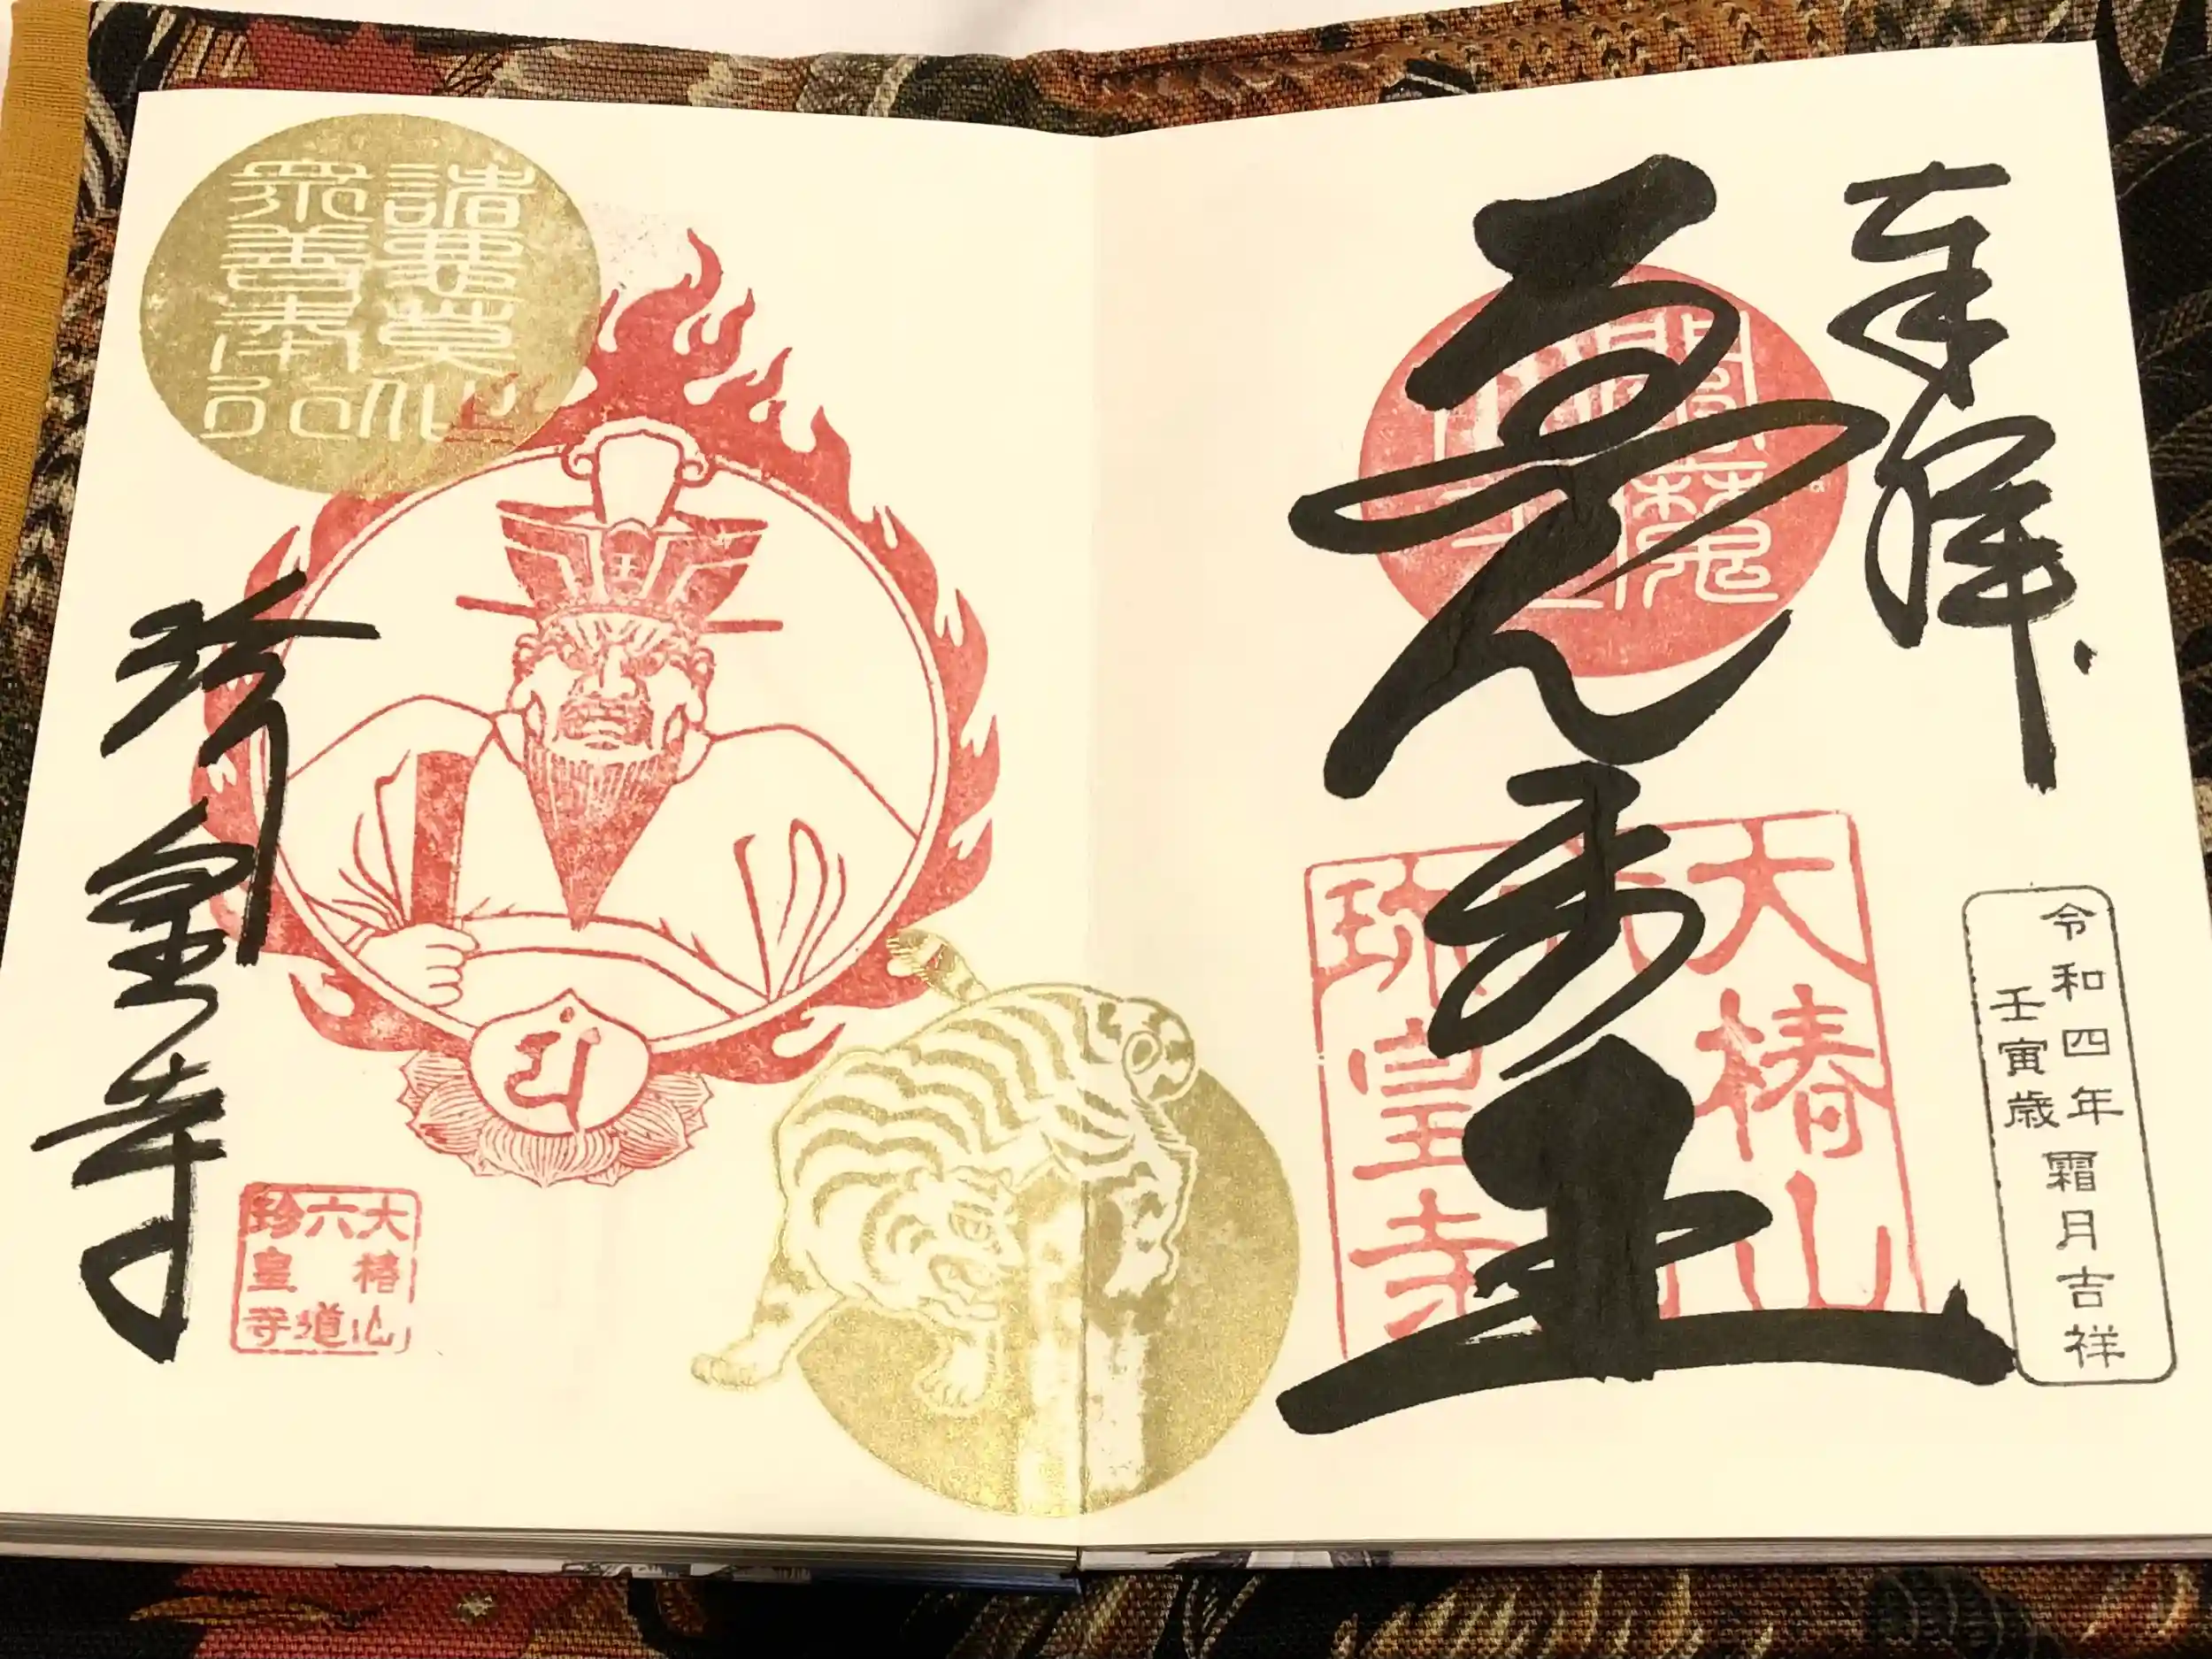 奉拝
令和四年 霜月吉祥
壬寅歳
ゑんま王
大椿山
珍皇寺
諸悪莫作
衆善奉行
珍皇寺
大椿山
六道
珍皇寺